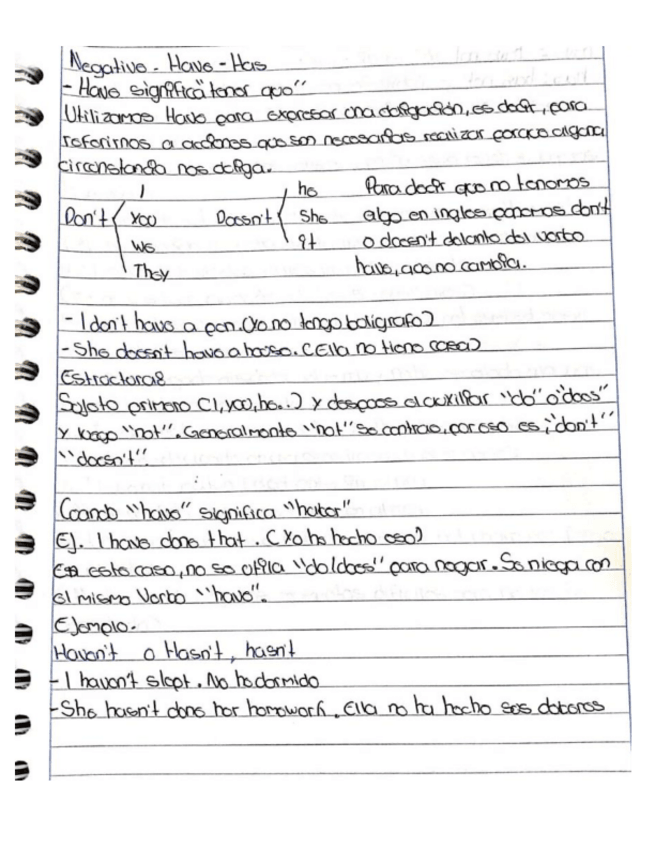 Negative - Have - Has
- Have significa "tener que"
Utilizamos Have para expresar una obligación, es decir, para
referirnos a acciones que son necesarias realizar porque alguna
circunstancia nos obliga.
I he Para decir que no tenemos
Don't You Doesn't She algo en ingles ponemos don't
We It o doesn't delante del verbo
They have, que no cambia.
- I don't have a pen. (Yo no tengo boligrafo)
- She doesn't have a house. (Ella no tiene casa)
Estructura:
Sujeto primero (I, you, he..) y despues el auxiliar "do" o "does"
y luego "not". Generalmente "not" se contrae, por eso es; "don't"
"doesn't".
Cuando "have" significa "haber"
Ej. I have done that. (Yo he hecho eso)
En este caso, no se utiliza "do/does" para negar. Se niega con
el mismo verbo "have".
Ejemplo.
Haven't o Hasn't, hasn't
- I haven't slept. No he dormido
- She hasn't done her homework. Ella no ha hecho sus deberes